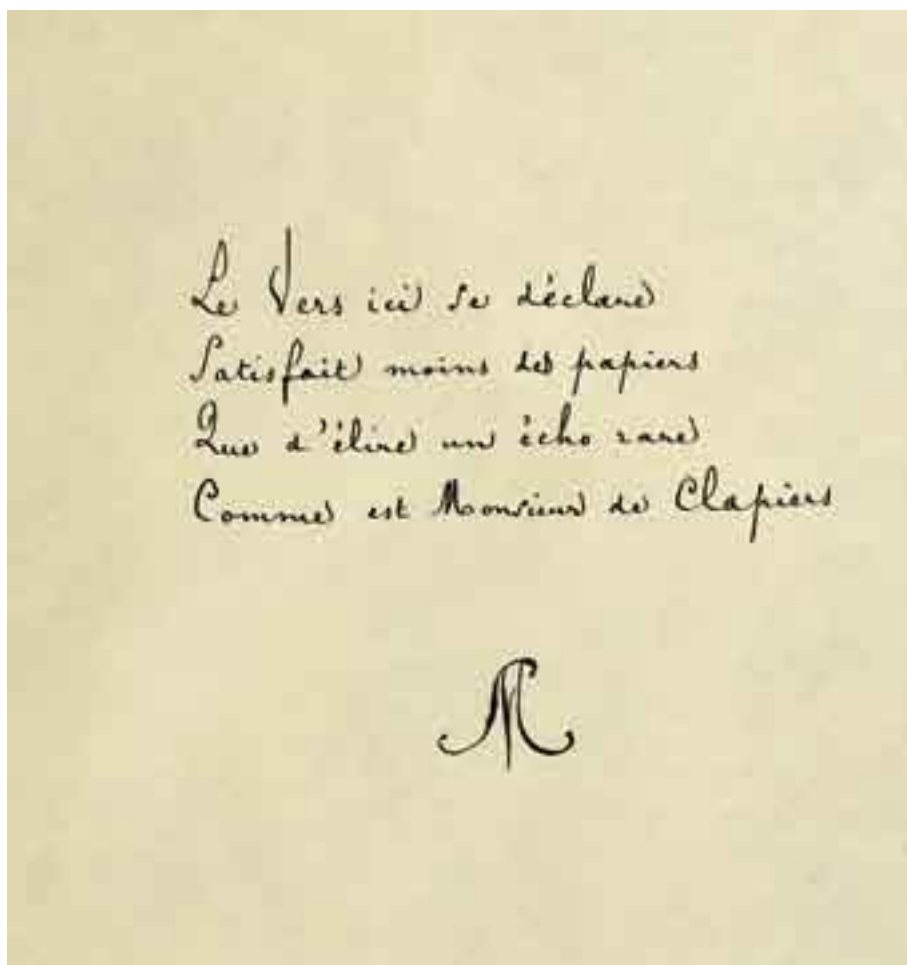 Le Vers ici se déclare
Satisfait moins des papiers
Que d'élire un écho rare
Comme est Monsieur de Clapiers
M